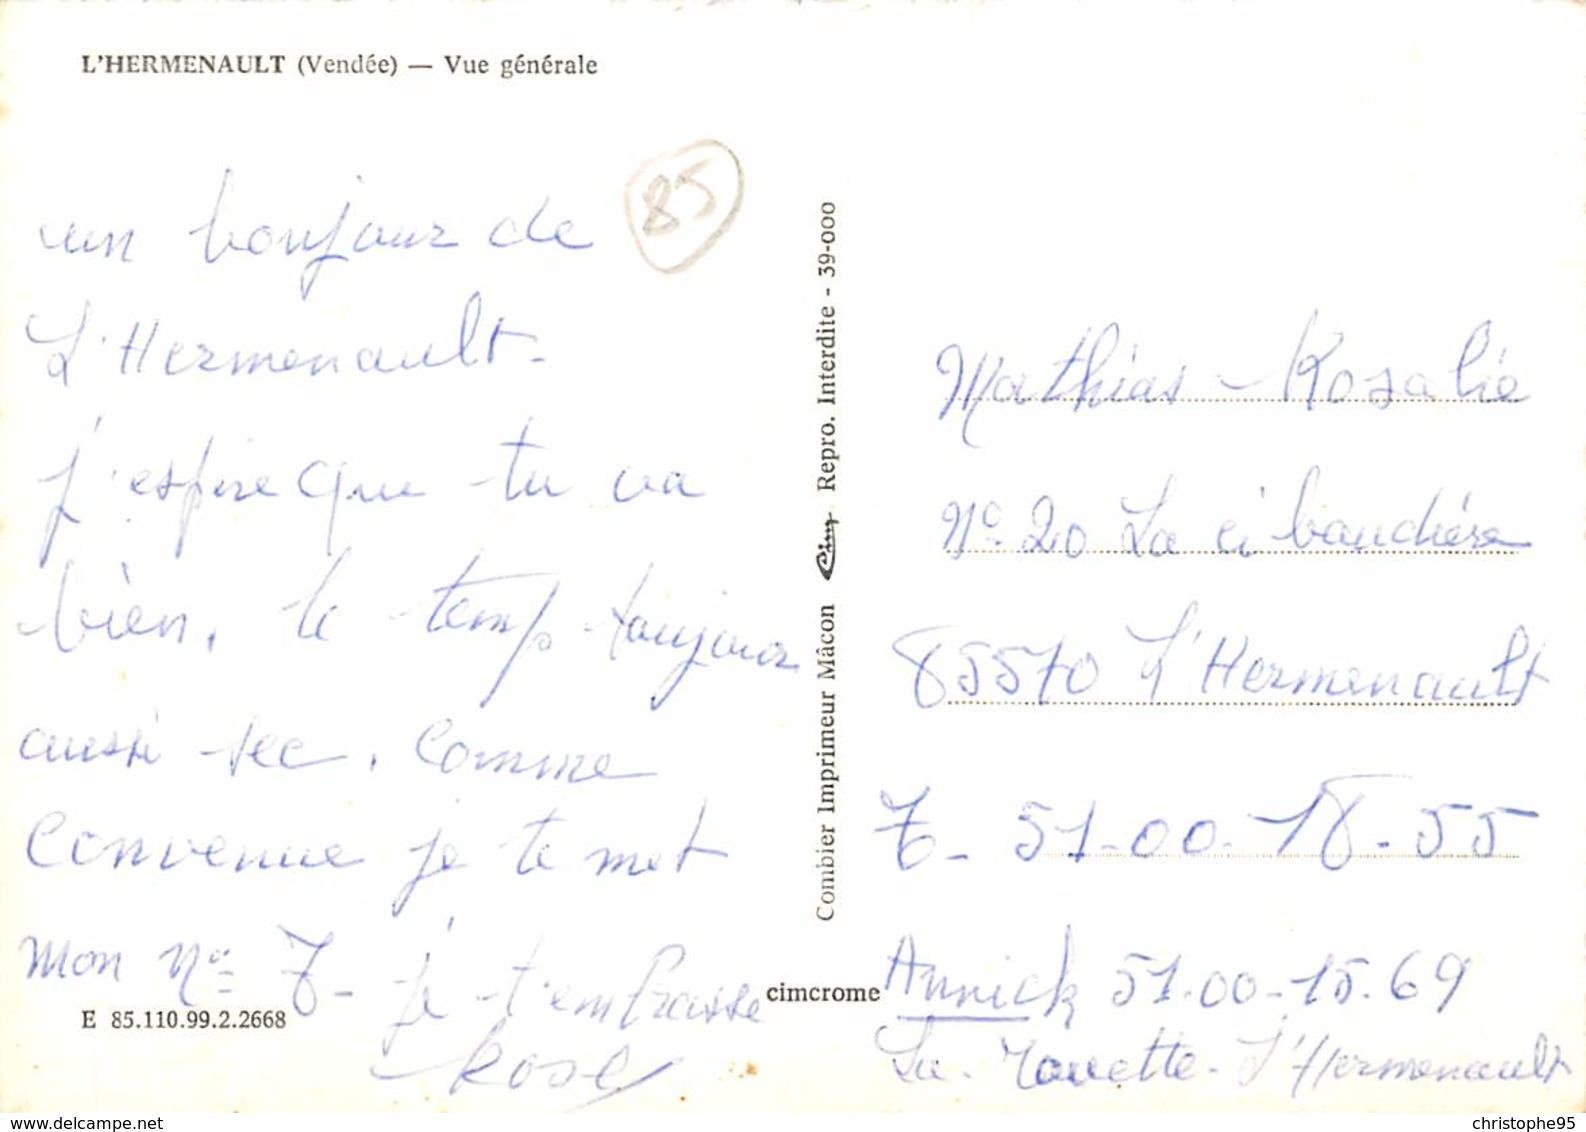 L'HERMENAULT (Vendée) — Vue générale
85
un bonjour de
L'Hermenault-
j'espère que tu va
bien, le temp toujours
aussi sec, comme
convenue je te met
mon N° T- je t'embrasse
Rose
E 85.110.99.2.2668
Combier Imprimeur Mâcon Cim Repro. Interdite - 39-000
cimcrome
Mathias - Rosalie
N° 20 La
85570 L'Hermenault
T- 51-00-18-55
Annick 51-00-15.69
La - L'Hermenault
www.delcampe.net
christophe95